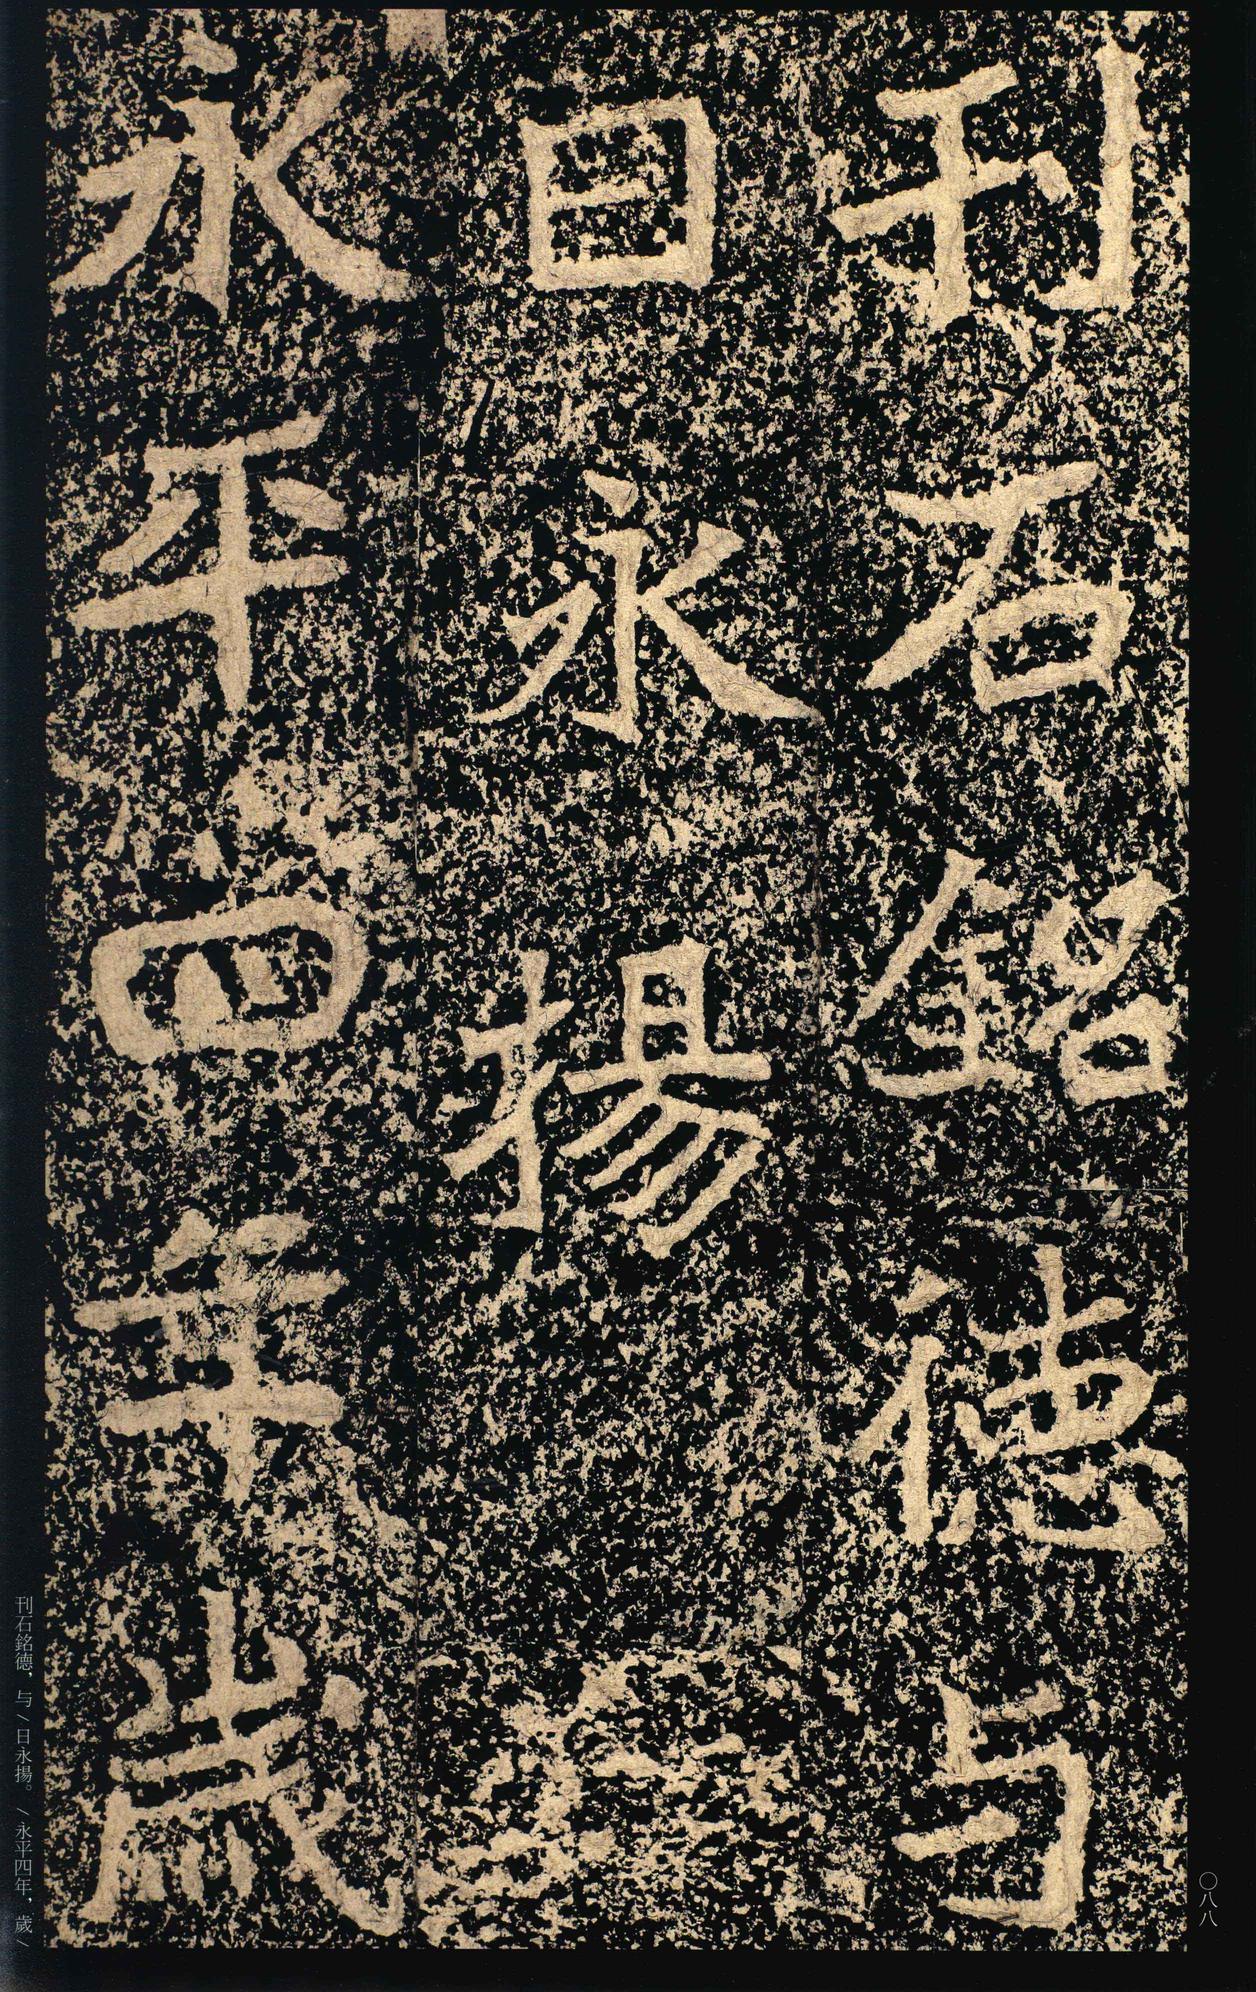 刊石銘德与
日永揚
永平四年歲
刊石銘德，与／日永揚。／永平四年，歲／
〇八八